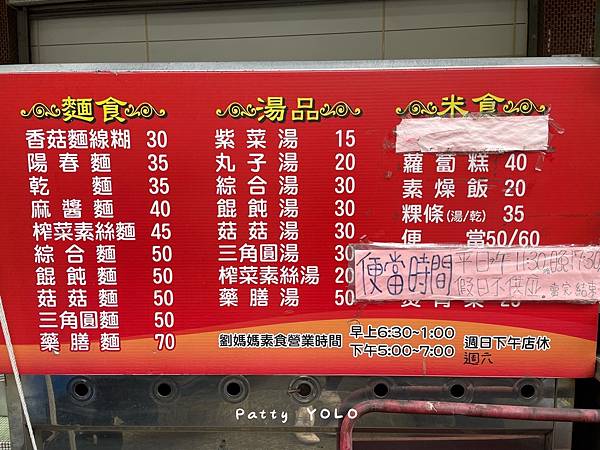 麵食
香菇麵線糊 30
陽春麵 35
乾麵 35
麻醬麵 40
榨菜素絲麵 45
綜合麵 50
餛飩麵 50
菇菇麵 50
三角圓麵 50
藥膳麵 70
湯品
紫菜湯 15
丸子湯 20
綜合湯 30
餛飩湯 30
菇菇湯 30
三角圓湯 30
榨菜素絲湯 20
藥膳湯 50
米食
蘿蔔糕 40
素燥飯 20
粿條(湯/乾) 35
便當50/60
便當時間
平日
假日不供应。賣完結束
劉媽媽素食營業時間
早上6:30~1:00
下午5:00~7:00
週日下午店休
週六
Patty YOLO